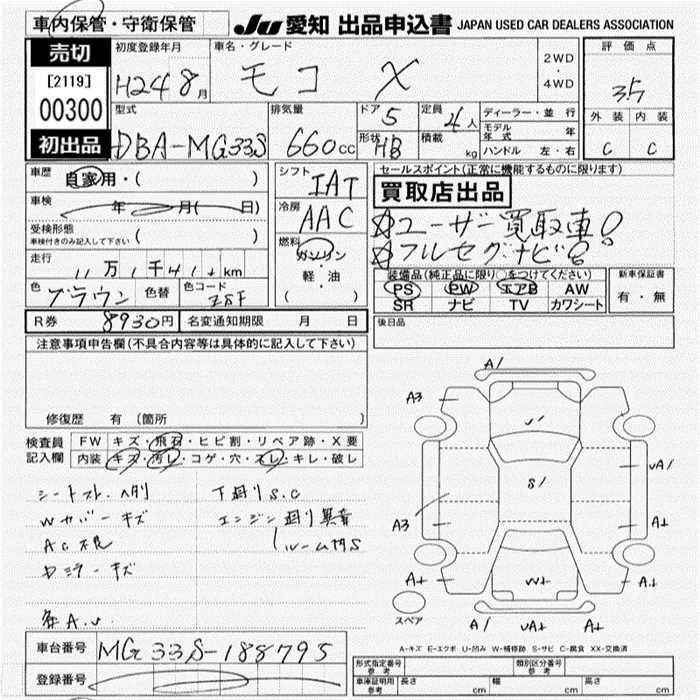 車内保管・守衛保管
JU 愛知 出品申込書 JAPAN USED CAR DEALERS ASSOCIATION
売切
[2119]
00300
初出品
初度登録年月
H24 8月
車名・グレード
モコ X
2WD
・
4WD
評価点
3.5
外装 内装
C C
型式
DBA-MG33S
排気量
660cc
ドア 5
形状 HB
定員 4人
積載 kg
ディーラー・並行
モデル年式 年
ハンドル 左・右
車歴
自家用・( )
車検 年 月( 日)
受検形態
車検付きのみ記入して下さい ( )
走行
11万1千41km
色 ブラウン 色替 色コード
シフト
IAT
冷房
AAC
燃料
ガソリン
軽・油
( )
セールスポイント(正常に機能するものに限ります)
買取店出品
☆ユーザー買取車!
☆フルセグナビ!
装備品(純正品に限り○をつけてください)
PS PW エアB AW
SR ナビ TV カワシート
新車保証書
有・無
R券 8930円 名変通知期限 月 日
後日品
注意事項申告欄(不具合内容等は具体的に記入して下さい)
修復歴 有 (箇所 )
検査員記入欄
FW キズ・飛石・ヒビ割・リペア跡・X要
内装 キズ・汚レ・コゲ・穴・スレ・キレ・破レ
下廻りS.C
Wカバーキズ エンジン廻り異音
AC不良 ルーム内S
Bミラーキズ
各A.U
A1
A3
U1
S1
UA1
A3
A+
A+
W+
A+
スペア
A1
UA+
A1
A-キズ E-エクボ U-凹み W-補修跡 S-サビ C-腐食 XX-交換済
車台番号 MG33S-188795
登録番号
形式指定番号 参考
類別区分番号 参考
車庫証明用 参考 長さ cm 幅 cm 高さ cm